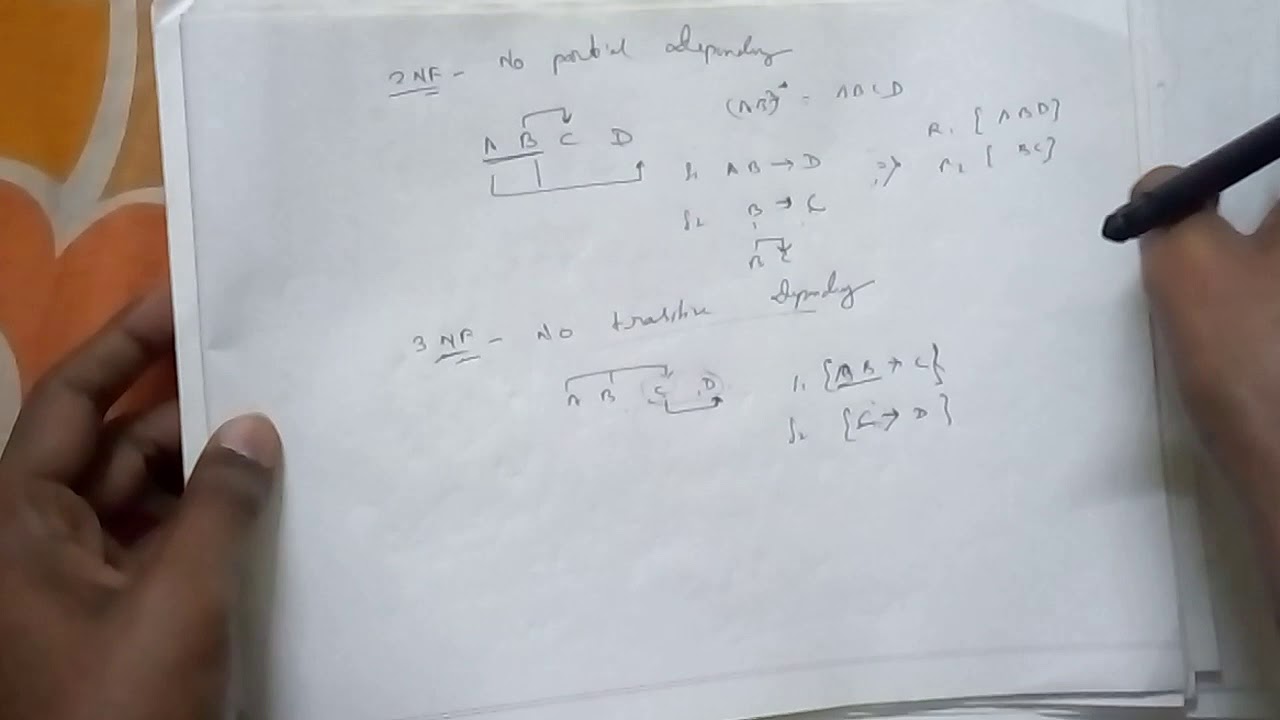 2NF - No partial dependency
(AB)⁺ = ABCD
A B C D
f₁ AB → D ⇒ R₁ {ABD}
f₂ B → C R₂ {BC}
B C
3NF - No transitive dependency
A B C D
f₁ {AB → C}
f₂ {C → D}